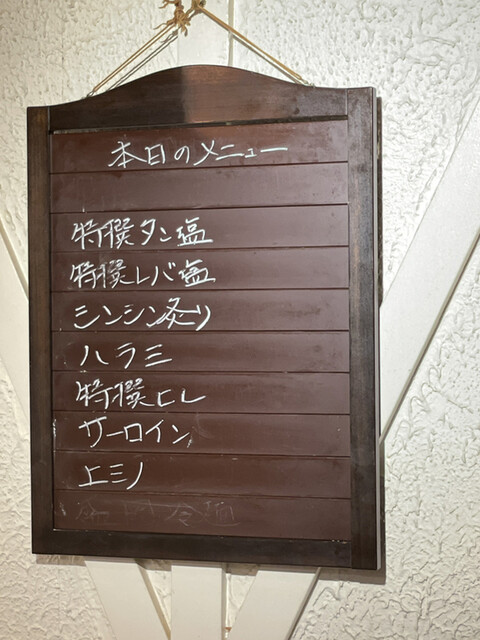 本日のメニュー
特撰タン塩
特撰レバ塩
シンシン炙り
ハラミ
特撰ヒレ
サーロイン
上ミノ